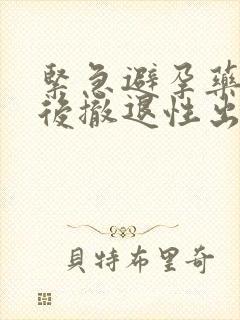 緊急避孕藥
後撤退性出
貝特布里奇